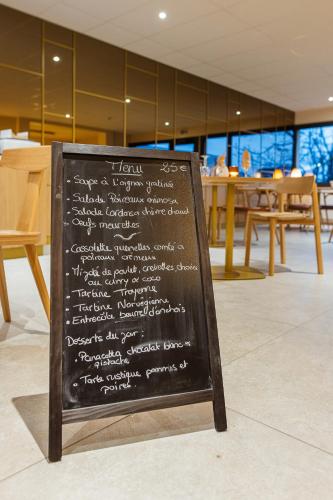 Menu 25€
• Soupe à l'oignon gratinée
• Salade Poireaux mimosa
• Salade Cardosa chèvre chaud
• Oeufs meurettes
• Cassolette quenelles comté a
poireaux crémeux
• Mijoté de poulet, crevettes, chorizo
au curry et coco
• Tartine Troyenne
• Tartine Norvegienne
• Entrecôte beurre d'anchois
Desserts du jour :
• Panacotta chocolat blanc
pistache
• Tarte rustique pommes et
poires